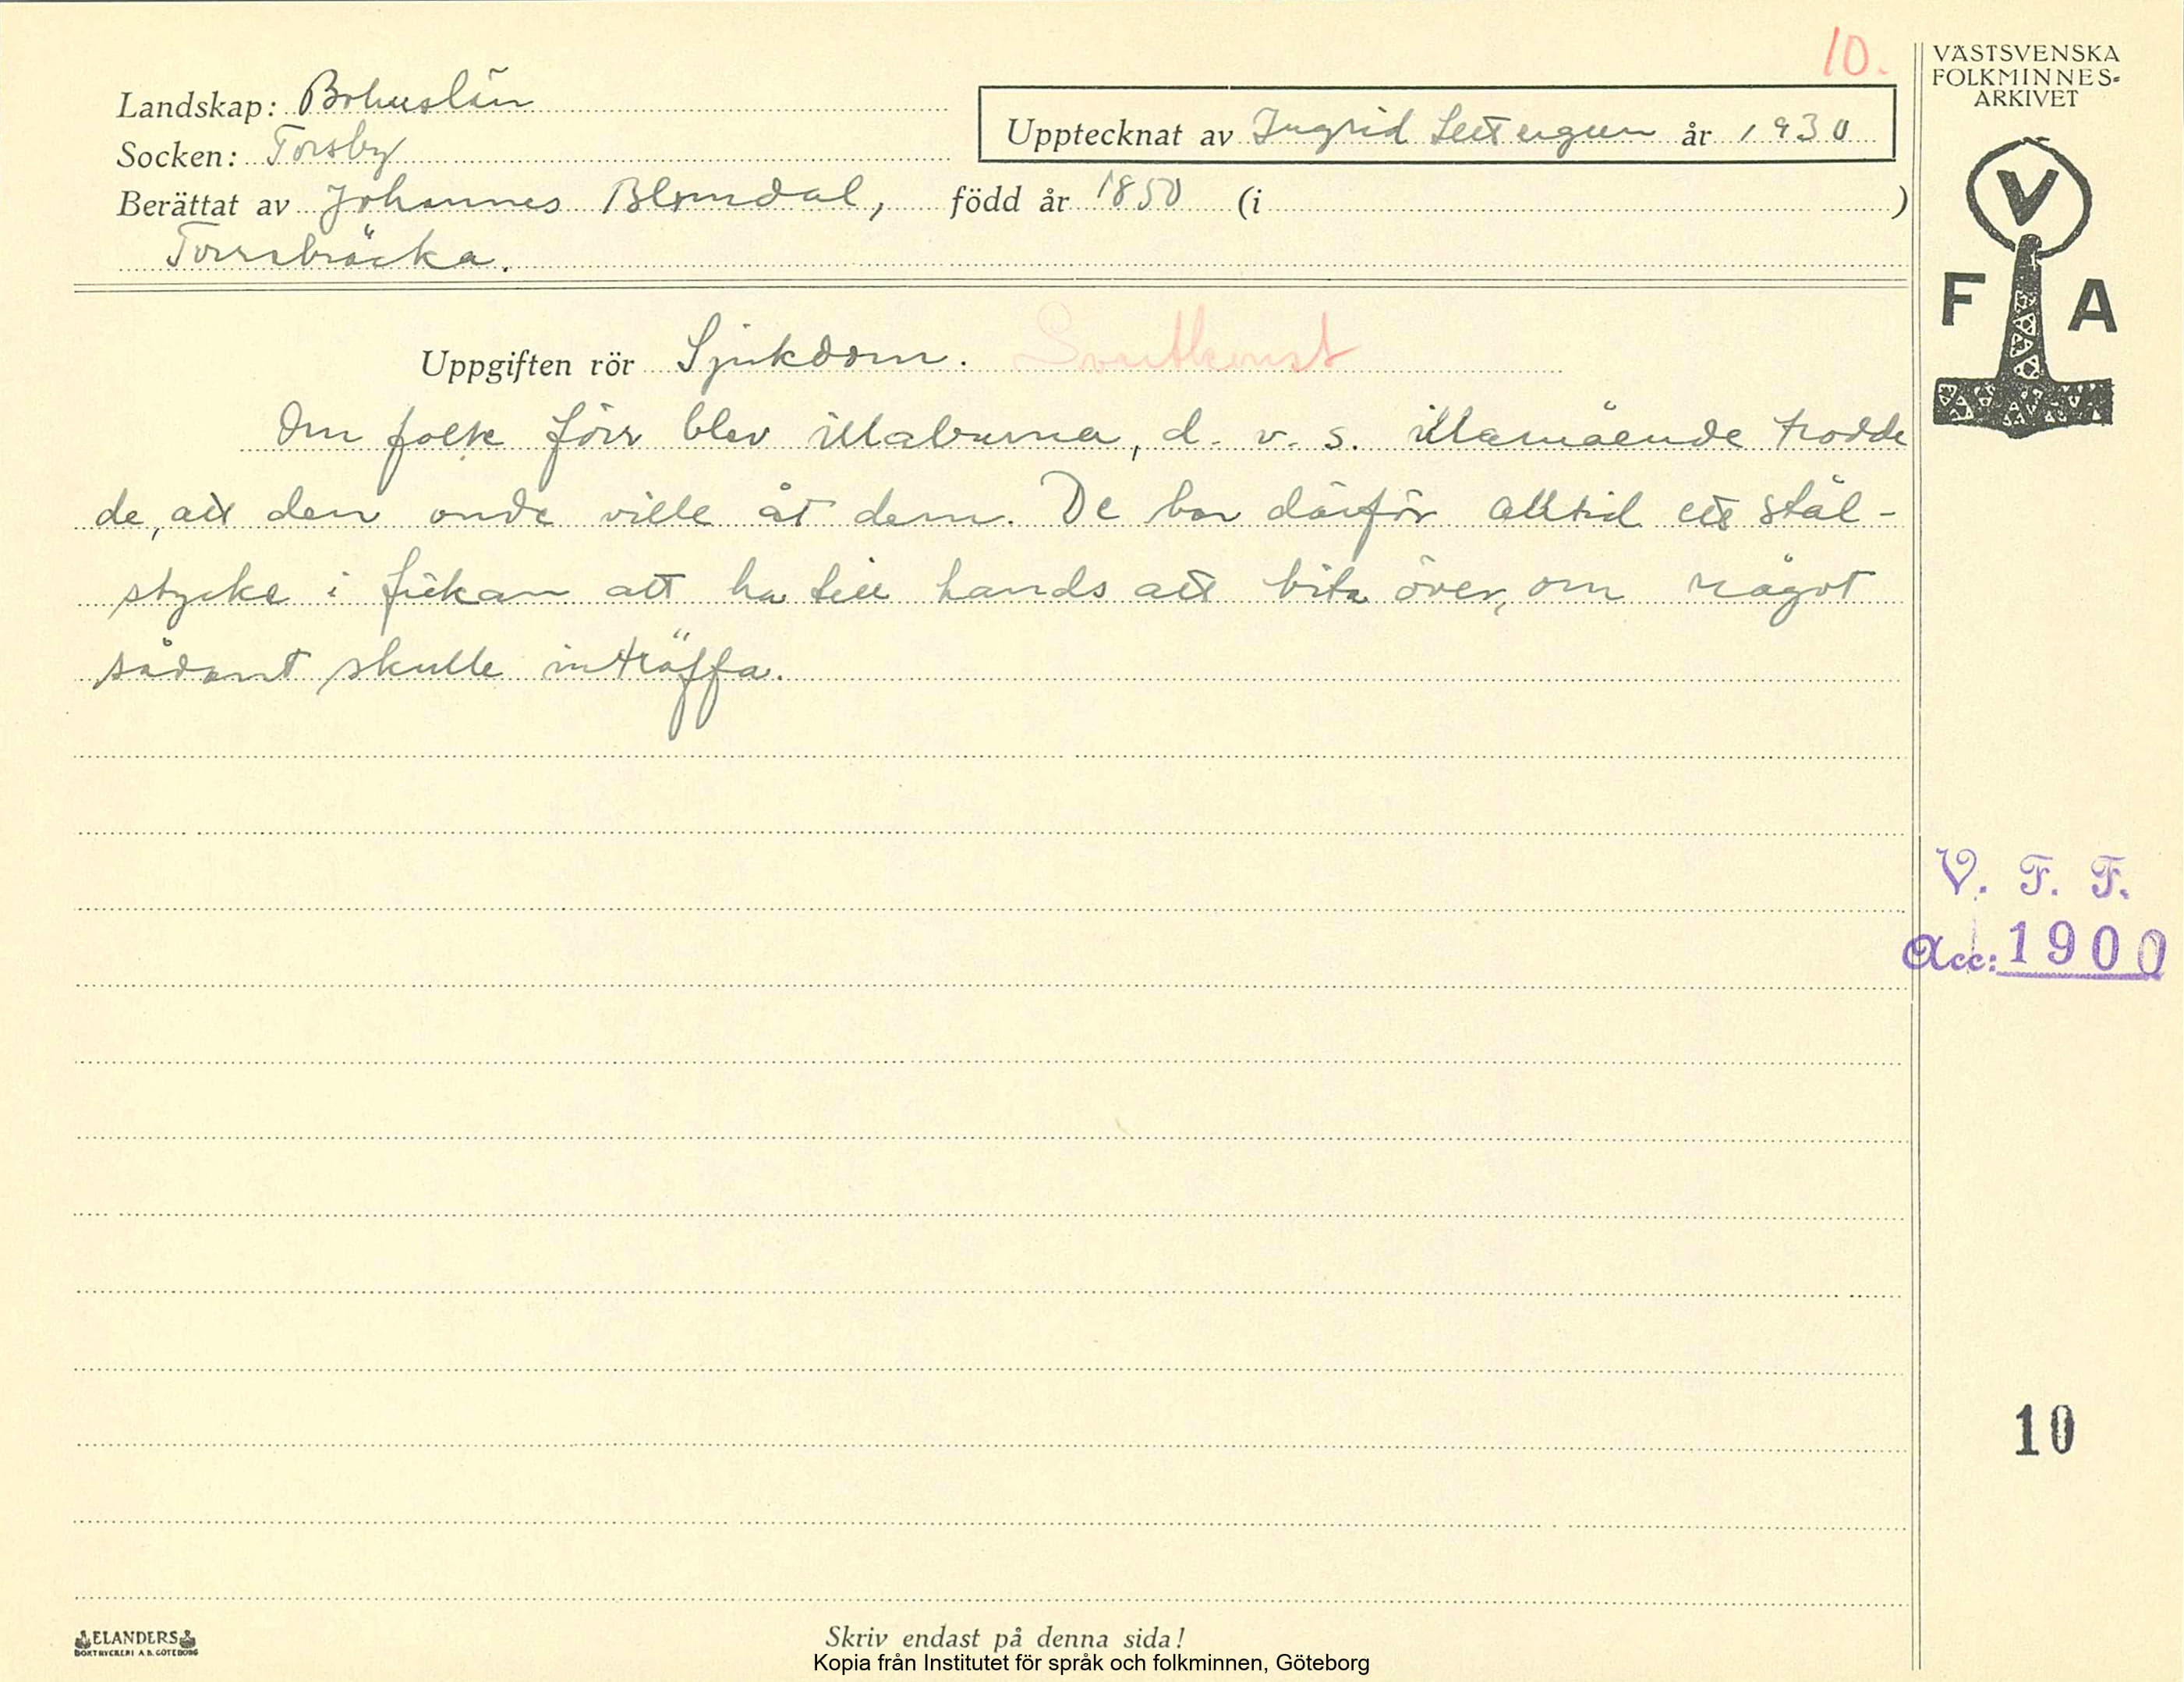 10.
VÄSTSVENSKA
FOLKMINNES-
ARKIVET
Landskap: Bohuslän
Upptecknat av Ingrid år 1930
Socken: Torsby
Berättat av Johannes Blomdal, född år 1850 (i )
Torrsbräcka.
V
F A
Uppgiften rör Sjukdom. Svartkonst
Om folk förr blev illabruna, d. v. s. illamående trodde
de, att den onde ville åt dem. De bar därför alltid ett stål-
stycke i fickan att ha till hands att bita över, om något
sådant skulle inträffa.
V. F. F.
Acc: 1900
10
ELANDERS
BOKTRYCKERI A.B. GÖTEBORG
Skriv endast på denna sida!
Kopia från Institutet för språk och folkminnen, Göteborg